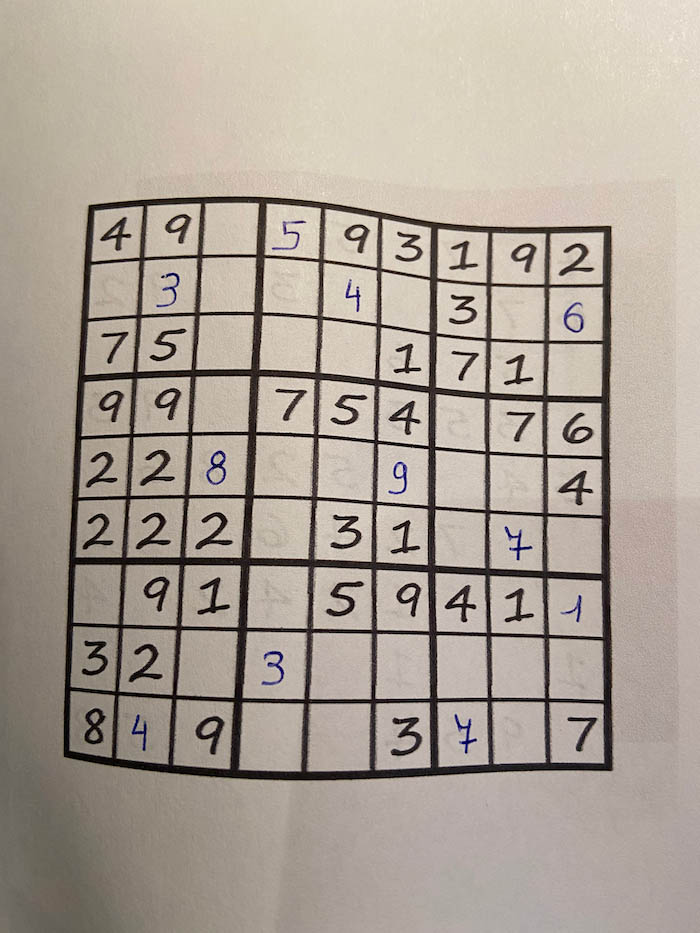 4 9 5 9 3 1 9 2
3 4 3 6
7 5 1 7 1
9 9 7 5 4 7 6
2 2 8 9 4
2 2 2 3 1 7
9 1 5 9 4 1 1
3 2 3
8 4 9 3 7 7